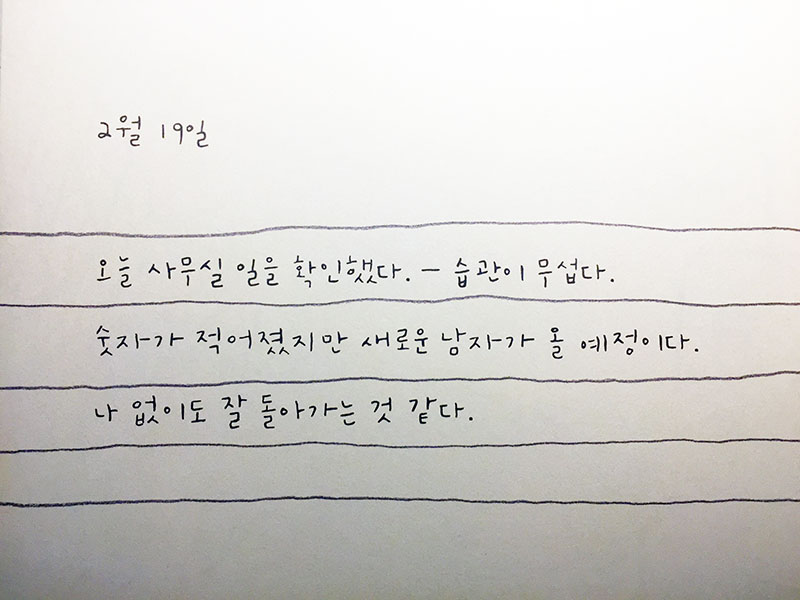 2월 19일
오늘 사무실 일을 확인했다. - 습관이 무섭다.
숫자가 적어졌지만 새로운 남자가 올 예정이다.
나 없이도 잘 돌아가는 것 같다.